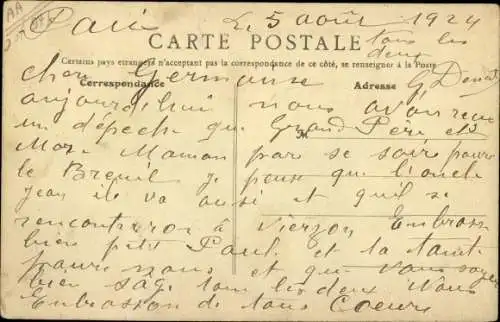 AA
Paris L. 5 août 1924
CARTE POSTALE tous les deux
Certains pays étrangers n'acceptant pas la correspondance de ce côté, se renseigner à la Poste
Correspondance Adresse
cher Germaine G Donat
aujourd'hui nous avons reçu
un dépeche que Grand Pere et
M
Maman pare se soir pour
le Breuil je pense que l'oncle
jean ile va aussi et qu'il se
rencontreron à Vierzon Embrasse
bien petit Paul et ta tante
poure nous et que vous soyer
bien sage tous les deux Nous
Enbrasson de tous Coeurs